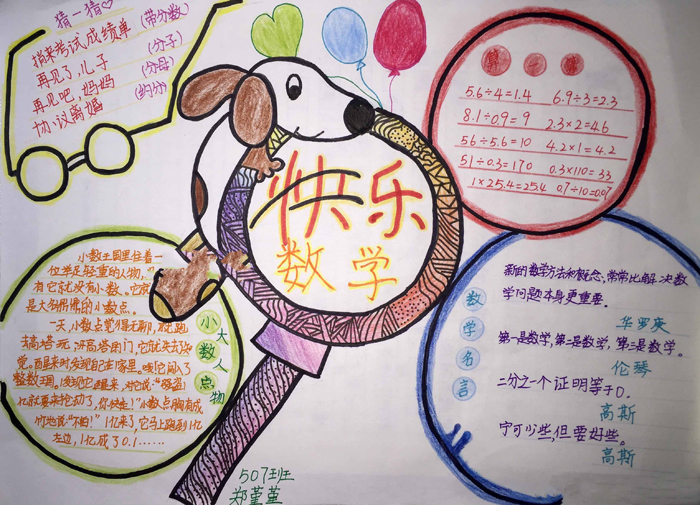 猜一猜
捎来考试成绩单 (带分数)
再见了,儿子 (分子)
再见吧,妈妈 (分母)
协议离婚 (约分)
快乐
数学
算一算
5.6÷4=1.4 6.9÷3=2.3
8.1÷0.9=9 2.3×2=4.6
56÷5.6=10 4.2×1=4.2
51÷0.3=170 0.3×110=33
1×25.4=25.4 0.7÷10=0.07
小数王国里住着一
位举足轻重的人物,
有它就没有小数。它就
是大名鼎鼎的小数点。
一天,小数点觉得无聊,就跑
去高塔玩,
觉。而是来时发现自己在家里。
整数王国,
亿就要来抢劫了,你快
竹地说:“不怕!”1亿来了,它马上跑到1亿
左边,1亿成了0.1……
小数点
大人物
数学名言
新的数学方法和概念,常常比解决数
学问题本身更重要。
华罗庚
第一是数学,第二是数学,第三是数学。
伦琴
二分之一个证明等于0。
高斯
宁可少些,但要好些。
高斯
507班
郑堇堇